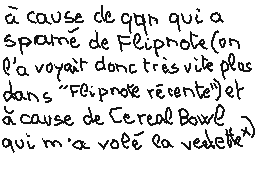 à cause de qqn qui a
spamé de Flipnote (on
l'a voyait donc très vite plus
dans "Flipnote récente") et
à cause de Cereal Bowl
qui m'a volé la vedette x)